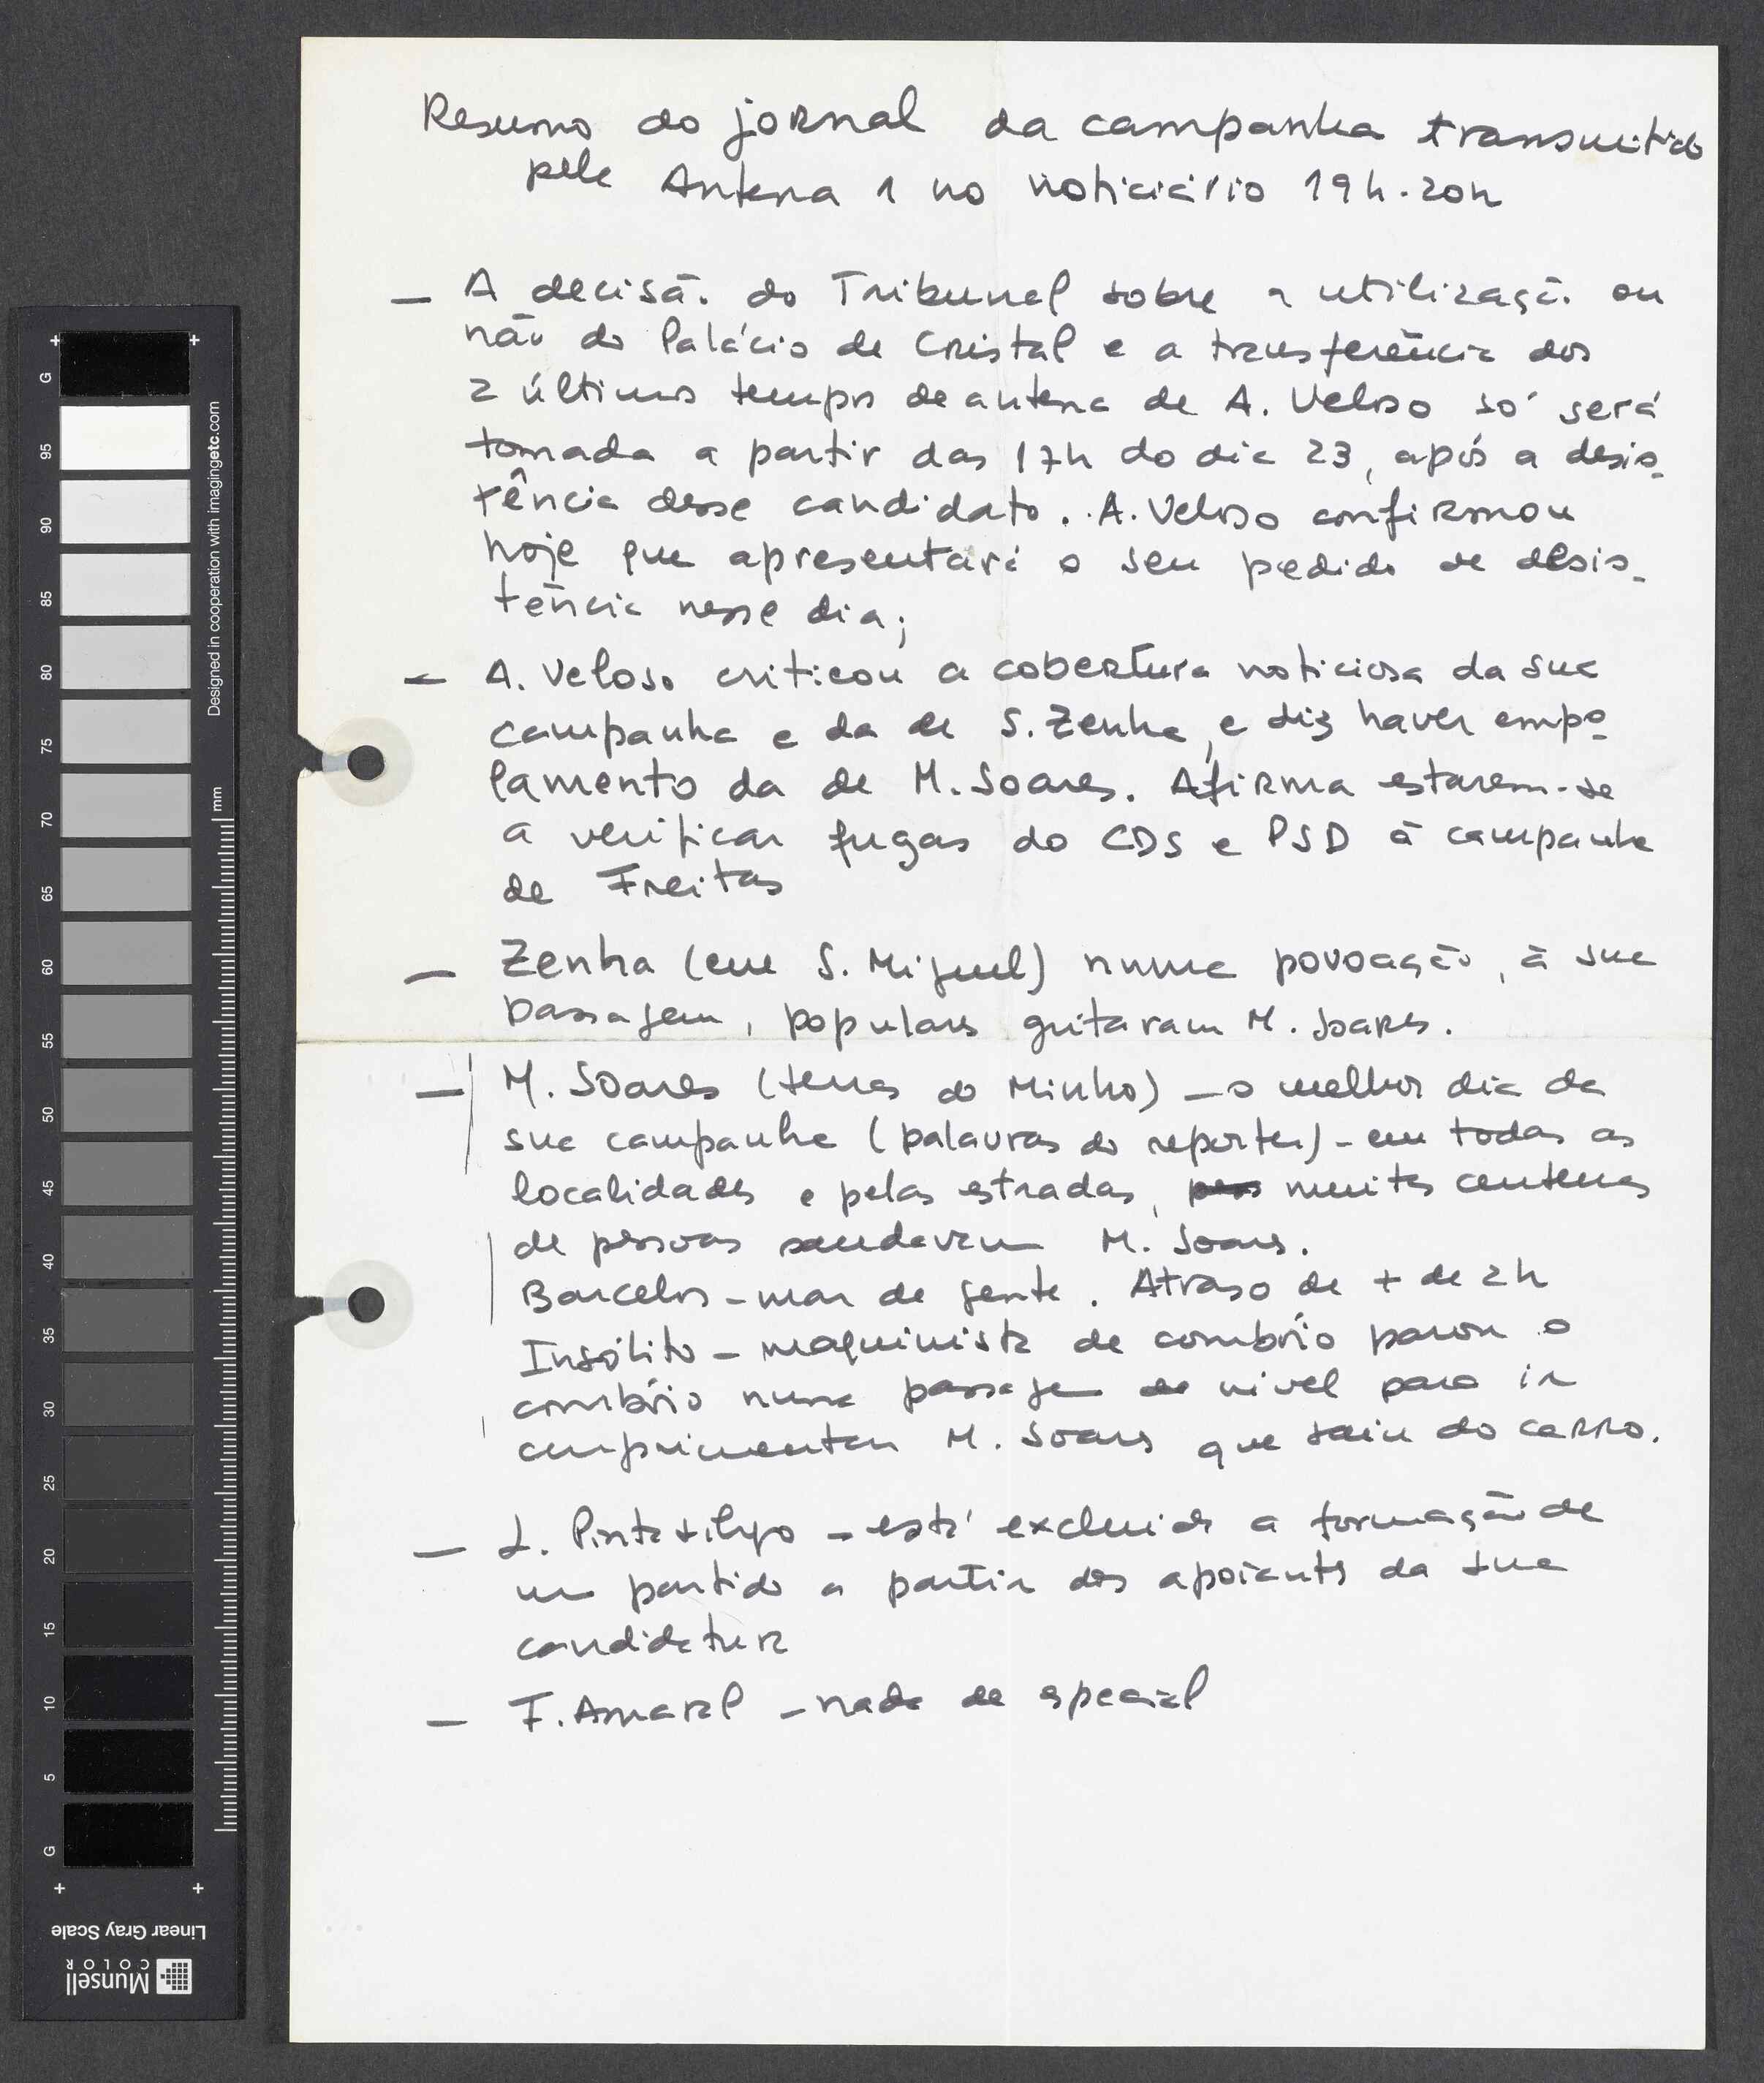 Resumo do jornal da campanha transmitido
pela Antena 1 no noticiário 19h-20h
— A decisão do Tribunal sobre a utilização ou
não do Palácio de Cristal e a transferência dos
2 últimos tempos de antena de A. Veloso só será
tomada a partir das 17h do dia 23, após a desis-
tência desse candidato. A. Veloso confirmou
hoje que apresentará o seu pedido de desis-
tência nesse dia;
— A. Veloso criticou a cobertura noticiosa da sua
campanha e da de S. Zenha, e diz haver empo-
lamento da de M. Soares. Afirma estarem-se
a verificar fugas do CDS e PSD à campanha
de Freitas
— Zenha (em S. Miguel) numa povoação, à sua
passagem, populares gritaram M. Soares.
— M. Soares (terras do Minho) — o melhor dia da
sua campanha (palavras do reporter) - em todas as
localidades e pelas estradas, muitas centenas
de pessoas saudavam M. Soares.
Barcelos - mar de gente. Atraso de + de 2h
Insólito - maquinista de combóio parou o
combóio numa passagem de nivel para ir
cumprimentar M. Soares que saiu do carro.
— L. Pintasilgo - está excluida a formação de
um partido a partir dos apoiantes da sua
candidatura
— F. Amaral - nada de especial
Designed in cooperation with imagingetc.com
mm
G
95
90
85
80
75
70
65
60
55
50
45
40
35
30
25
20
15
10
5
G
Linear Gray Scale
Munsell
COLOR